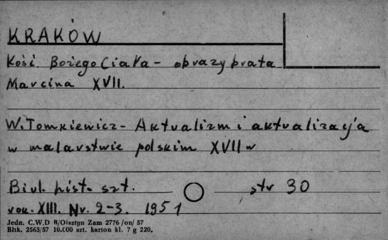 KRAKÓW
Kość. Bożego Ciała - obrazy brata
Marcina XVII.
W. Tomkiewicz - Aktualizm i aktualizacja
w malarstwie polskim XVII w
Biul. hist. szt. str 30
rok. XIII. Nr. 2-3. 1951
Jedn. C.W.D R/Olsztyn Zam 2776/on/57
Bltk. 2563/57 10.000 szt. karton kl. 7 g 220,